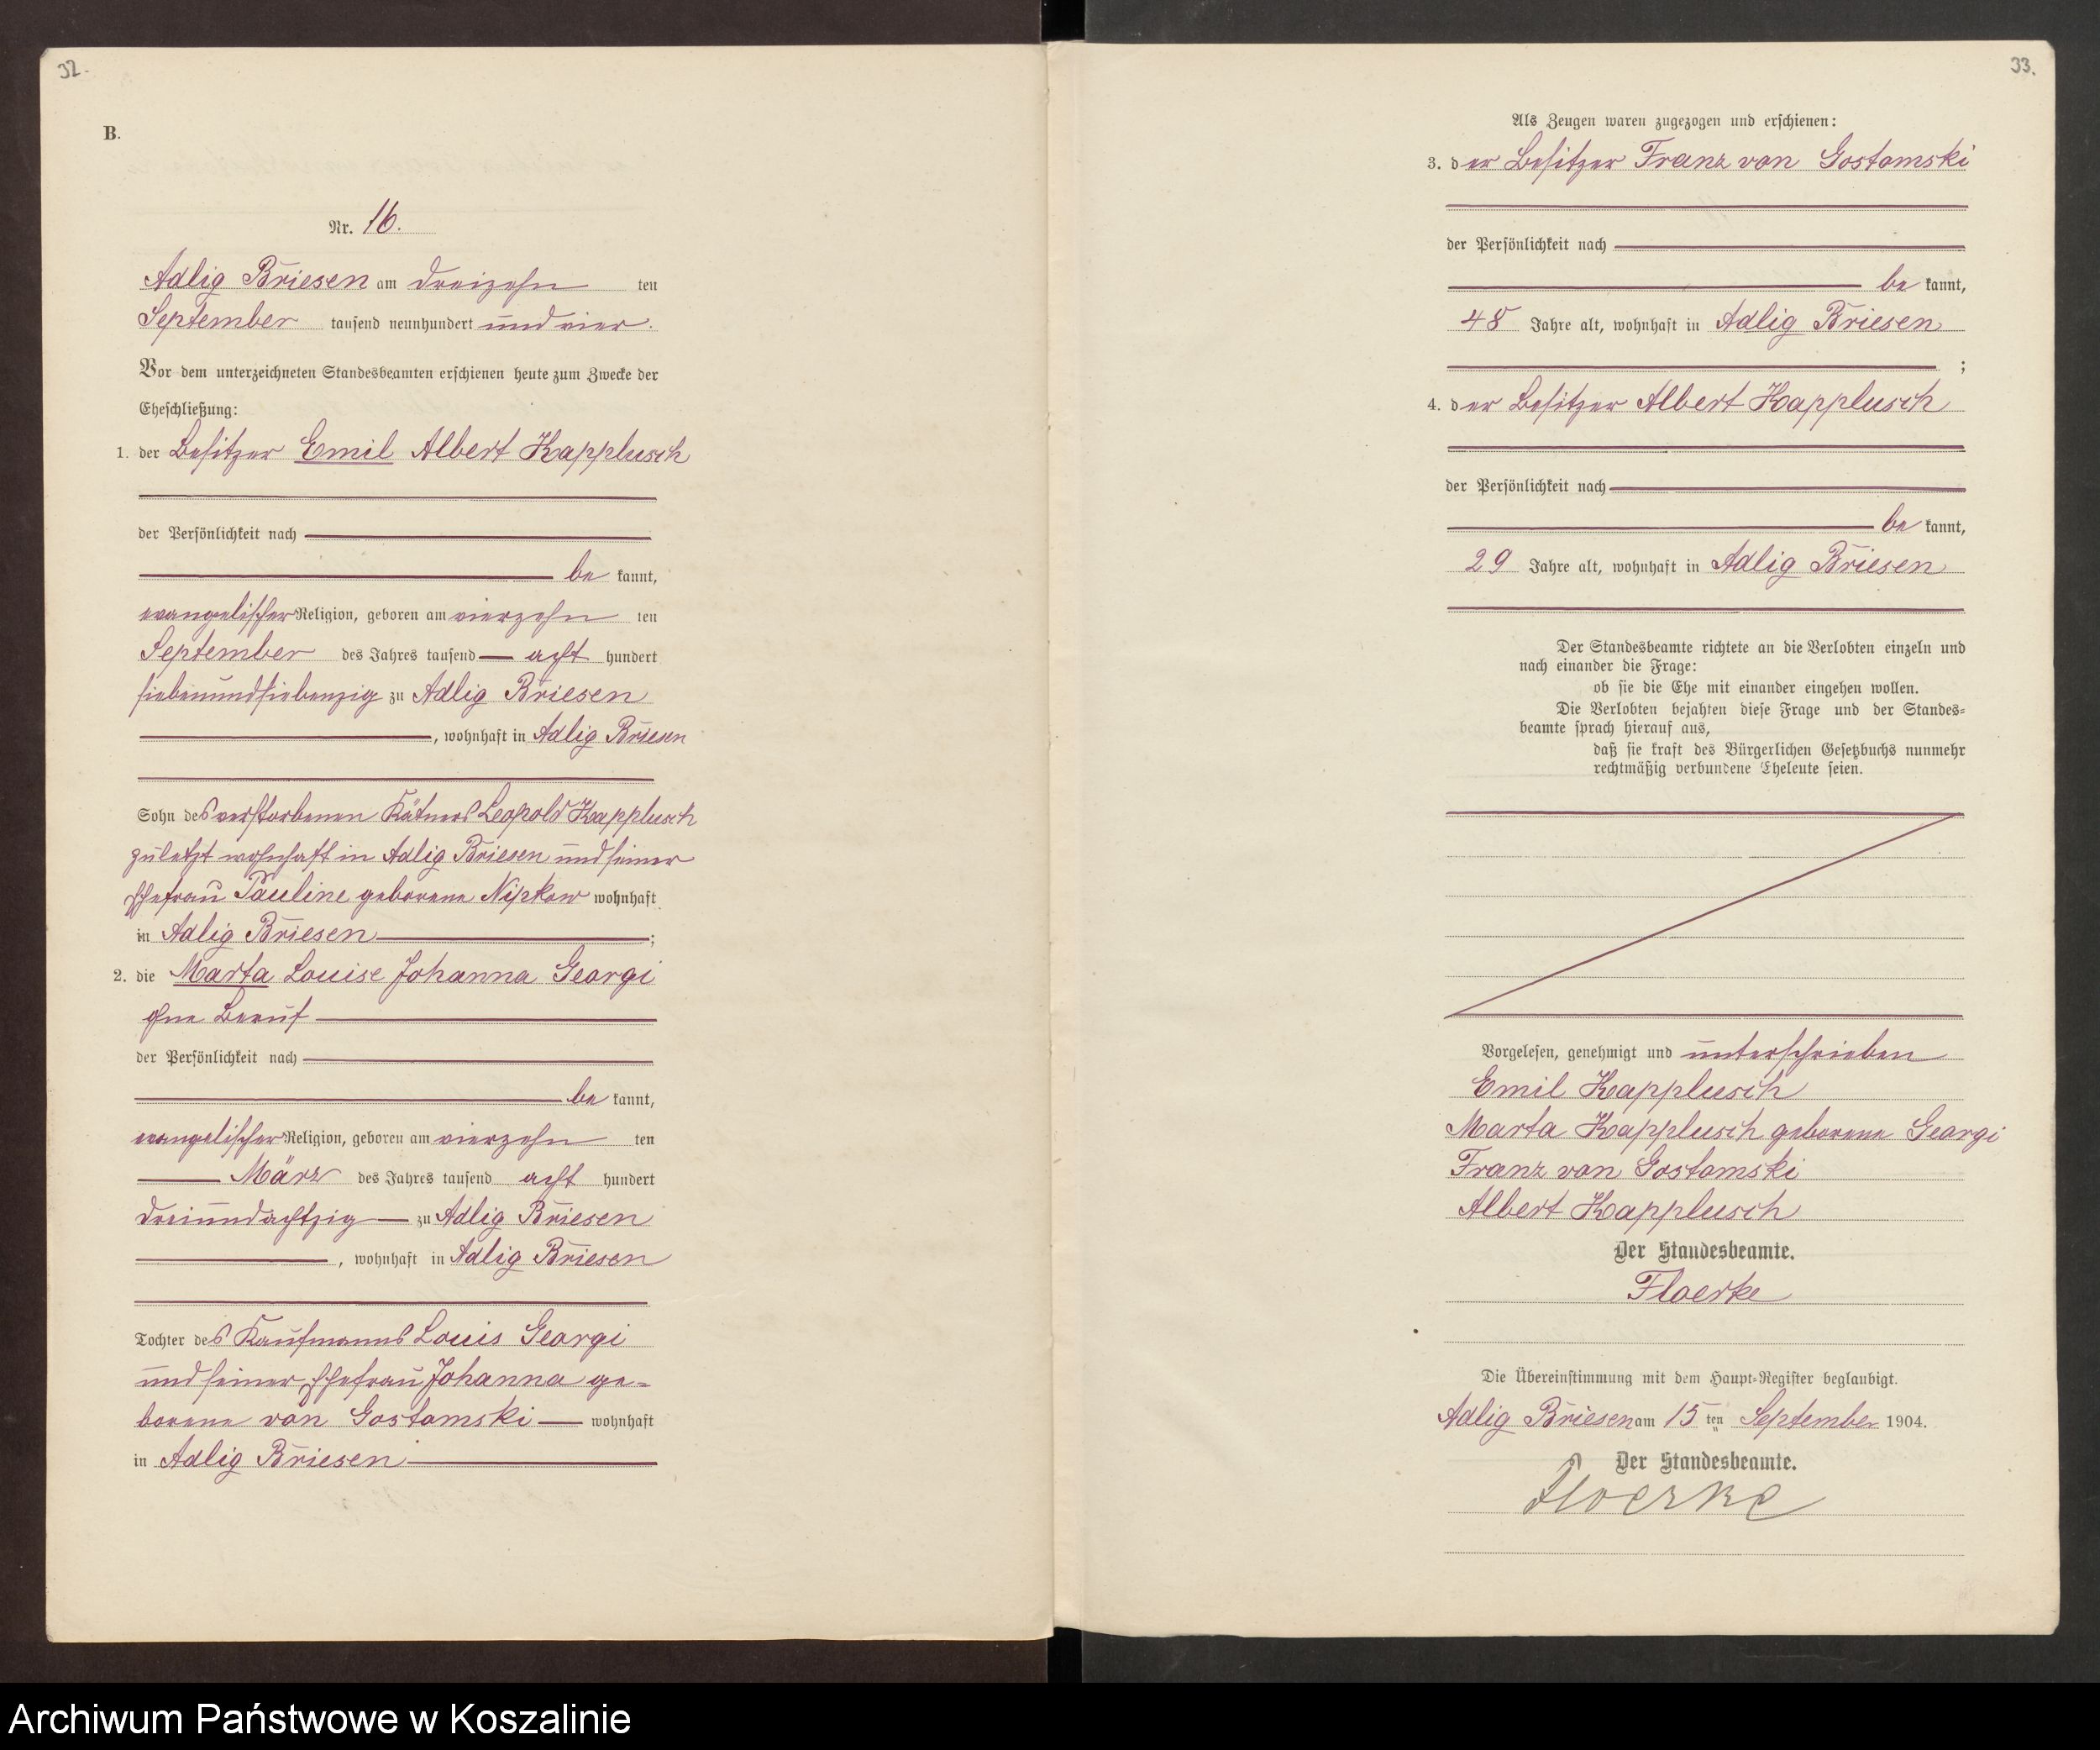 32.
B.
Nr. 16.
Adlig Briesen am dreizehn ten
September tausend neunhundert und vier.
Vor dem unterzeichneten Standesbeamten erschienen heute zum Zwecke der
Eheschließung:
1. der Besitzer Emil Albert Kapplusch
der Persönlichkeit nach
be kannt,
evangelischer Religion, geboren am vierzehn ten
September des Jahres tausend acht hundert
siebenundsiebenzig zu Adlig Briesen
, wohnhaft in Adlig Briesen
Sohn des verstorbenen Kätners Leopold Kapplusch
zuletzt wohnhaft in Adlig Briesen und seiner
Ehefrau Pauline geborene Nipkow wohnhaft
in Adlig Briesen ;
2. die Marta Louise Johanna Georgi
ohne Beruf
der Persönlichkeit nach
be kannt,
evangelischer Religion, geboren am vierzehn ten
März des Jahres tausend acht hundert
dreiundachtzig zu Adlig Briesen
, wohnhaft in Adlig Briesen
Tochter des Kaufmanns Louis Georgi
und seiner Ehefrau Johanna ge-
borene von Gostomski wohnhaft
in Adlig Briesen
33.
Als Zeugen waren zugezogen und erschienen:
3. der Besitzer Franz von Gostomski
der Persönlichkeit nach
be kannt,
48 Jahre alt, wohnhaft in Adlig Briesen
;
4. der Besitzer Albert Kapplusch
der Persönlichkeit nach
be kannt,
29 Jahre alt, wohnhaft in Adlig Briesen
Der Standesbeamte richtete an die Verlobten einzeln und
nach einander die Frage:
ob sie die Ehe mit einander eingehen wollen.
Die Verlobten bejahten diese Frage und der Standes-
beamte sprach hierauf aus,
daß sie kraft des Bürgerlichen Gesetzbuchs nunmehr
rechtmäßig verbundene Eheleute seien.
Vorgelesen, genehmigt und unterschrieben
Emil Kapplusch
Marta Kapplusch geborene Georgi
Franz von Gostomski
Albert Kapplusch
Der Standesbeamte.
Floerke
Die Übereinstimmung mit dem Haupt-Register beglaubigt.
Adlig Briesen am 15 ten September 1904.
Der Standesbeamte.
Floerke
Archiwum Państwowe w Koszalinie